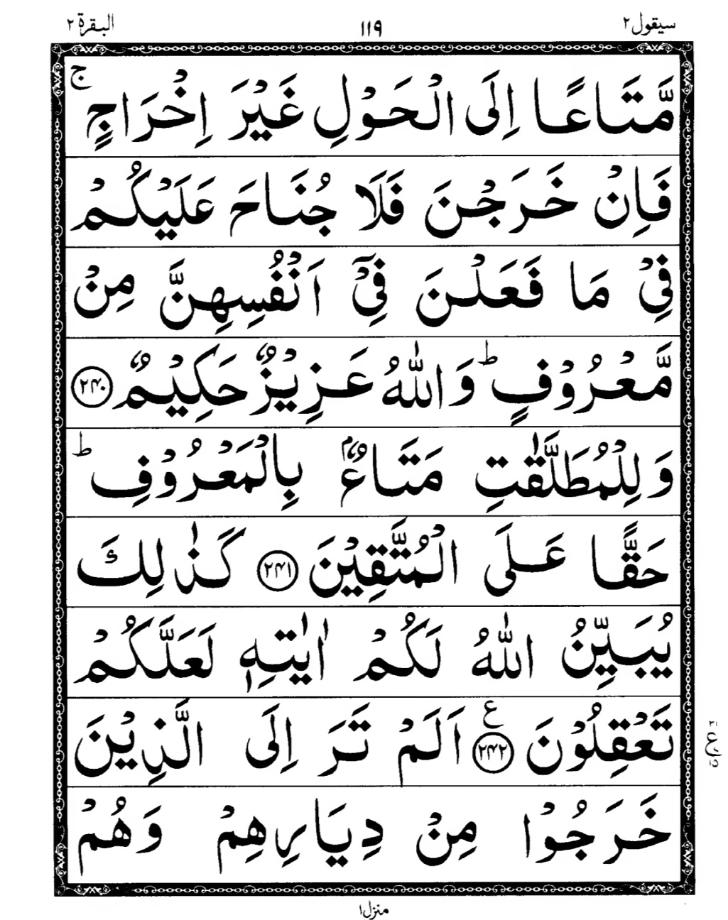 سيقول ٢ ١١٩ البقرة ٢
مَّتَاعًا اِلَى الْحَوْلِ غَيْرَ اِخْرَاجٍ ۚ
فَاِنْ خَرَجْنَ فَلَا جُنَاحَ عَلَيْكُمْ
فِيْ مَا فَعَلْنَ فِيْٓ اَنْفُسِهِنَّ مِنْ
مَّعْرُوْفٍ ؕ وَاللّٰهُ عَزِيْزٌ حَكِيْمٌ ﴿۲۴۰﴾
وَلِلْمُطَلَّقٰتِ مَتَاعٌۢ بِالْمَعْرُوْفِ ؕ
حَقًّا عَلَى الْمُتَّقِيْنَ ﴿۲۴۱﴾ كَذٰلِكَ
يُبَيِّنُ اللّٰهُ لَكُمْ اٰيٰتِهٖ لَعَلَّكُمْ
تَعْقِلُوْنَ ﴿۲۴۲﴾ ع اَلَمْ تَرَ اِلَى الَّذِيْنَ
خَرَجُوْا مِنْ دِيَارِهِمْ وَهُمْ
منزل ١